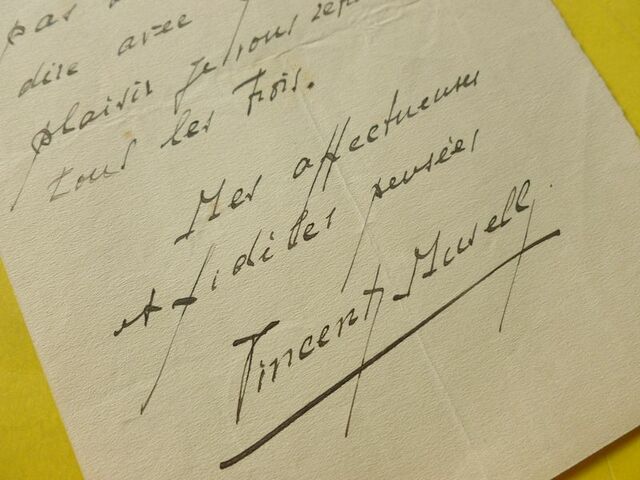 pas
dire avec
plaisir je vous
tous les trois.
Mes affectueuses
et fidèles pensées
Vincent Muselli